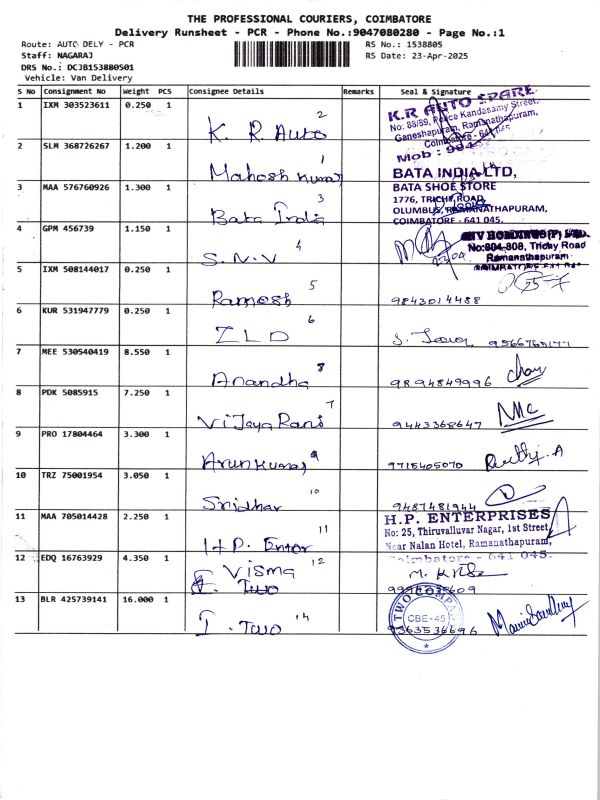 THE PROFESSIONAL COURIERS, COIMBATORE
Delivery Runsheet - PCR - Phone No.:9047080280 - Page No.:1
Route: AUTO DELY - PCR
Staff: NAGARAJ
DRS No.: DCJB153880501
Vehicle: Van Delivery
RS No.: 1538805
RS Date: 23-Apr-2025
S No Consignment No Weight PCS Consignee Details Remarks Seal & Signature
1 IXM 303523611 0.250 1 K. R. Auto 2
K.R AUTO SPARE
No: 88/89, Peace Kandasamy Street,
Ganeshapuram, Ramanathapuram,
Coimbatore - 641 045.
Mob : 994
2 SLM 368726267 1.200 1 Mahesh Kumar 1
3 MAA 576760926 1.300 1 Bata India 3
BATA INDIA LTD,
BATA SHOE STORE
1776, TRICHY ROAD,
OLUMBUS, RAMANATHAPURAM,
COIMBATORE - 641 045.
4 GPM 456739 1.150 1 S.N.V 4
SNV HOLDINGS(P) LTD.
No:804-808, Trichy Road
Ramanathapuram
COIMBATORE-641 045
5 IXM 508144017 0.250 1 Ramesh 5 9843014488
6 KUR 531947779 0.250 1 ZLD 6
7 MEE 530540419 8.550 1 Anandha 8 9894849996
8 PDK 5085915 7.250 1 Vijaya Rani 7 9443368647
9 PRO 17804464 3.300 1 Arunkumar 9 9715405070
10 TRZ 75001954 3.050 1 Sridhar 10 9487481944
11 MAA 705014428 2.250 1 H.P. Enter 11
H.P. ENTERPRISES
No: 25, Thiruvalluvar Nagar, 1st Street,
Near Nalan Hotel, Ramanathapuram,
Coimbatore - 641 045.
12 EDQ 16763929 4.350 1 Visma 12
Two
13 BLR 425739141 16.000 1 I. Two 14
CBE-45
9363536696